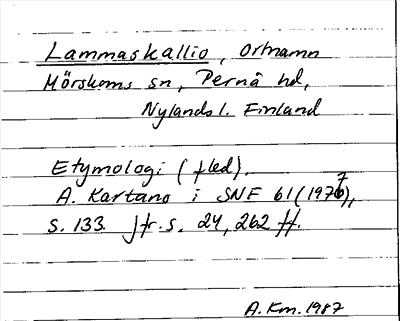 Lammaskallio, Ortnamn
Mörskoms sn, Pernå hd,
Nylands l. Finland
Etymologi (fled).
A. Kartano i SNF 61 (1977),
s. 133. jfr. s. 24, 262 ff.
A.Km. 1987